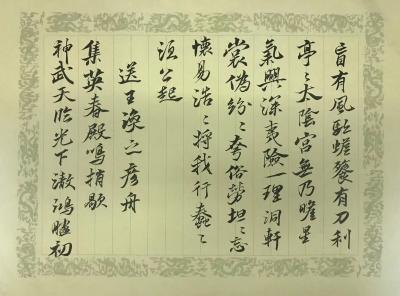 盲有風駈蟾餮有刀利
亭〻太陰宮無乃瞻星
氣興深夷險一理洞軒
裳偽紛〻夸俗勞坦〻忘
懷易浩〻將我行蠢〻
須公起
送王渙之彥舟
集英春殿鳴捎歇
神武天臨光下澈鴻臚初